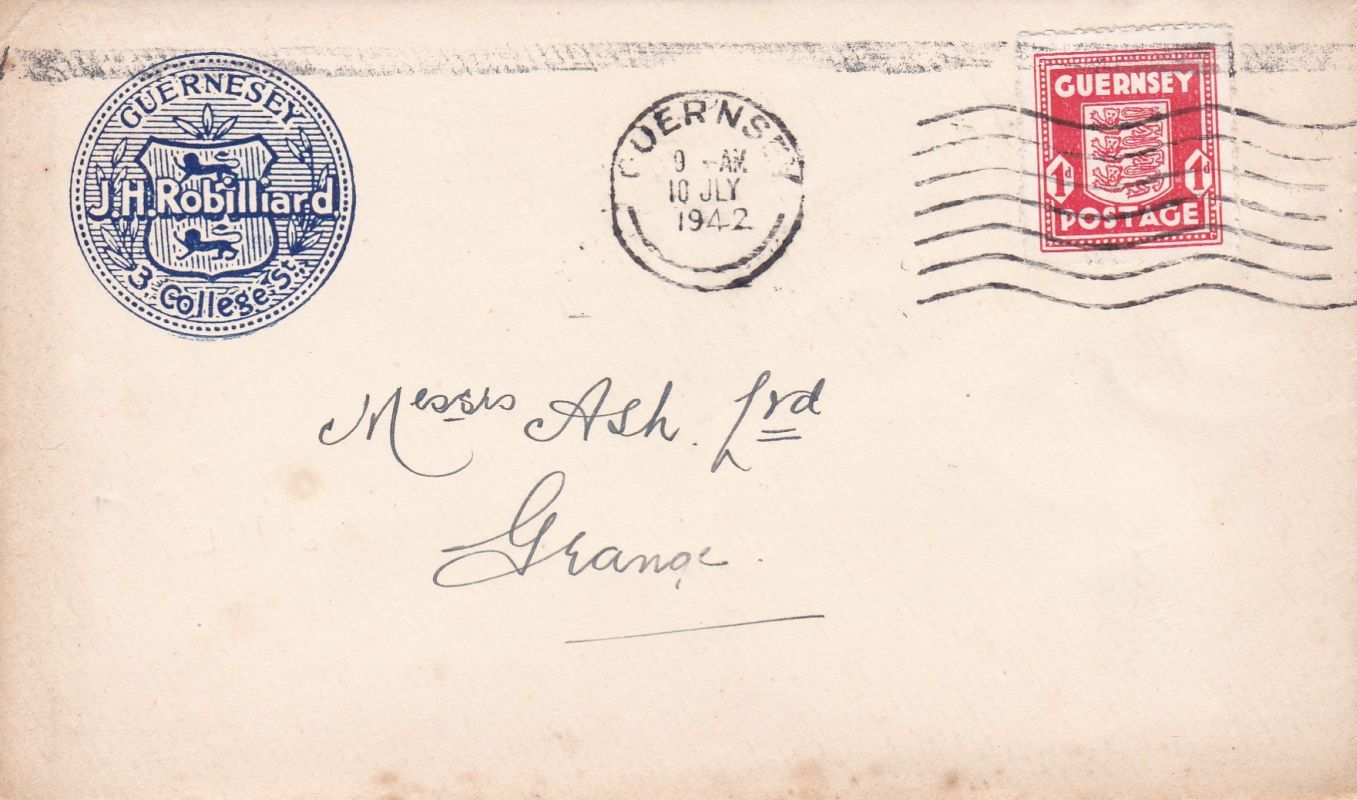 GUERNESEY
J.H.Robilliard.
3 College St.
GUERNSEY
9 - AM
10 JLY
1942
GUERNSEY
1d 1d
POSTAGE
Messrs Ash. Lrd
Grange.